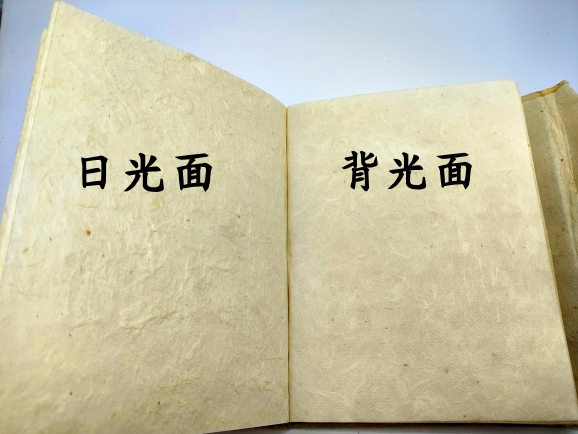 日光面
背光面